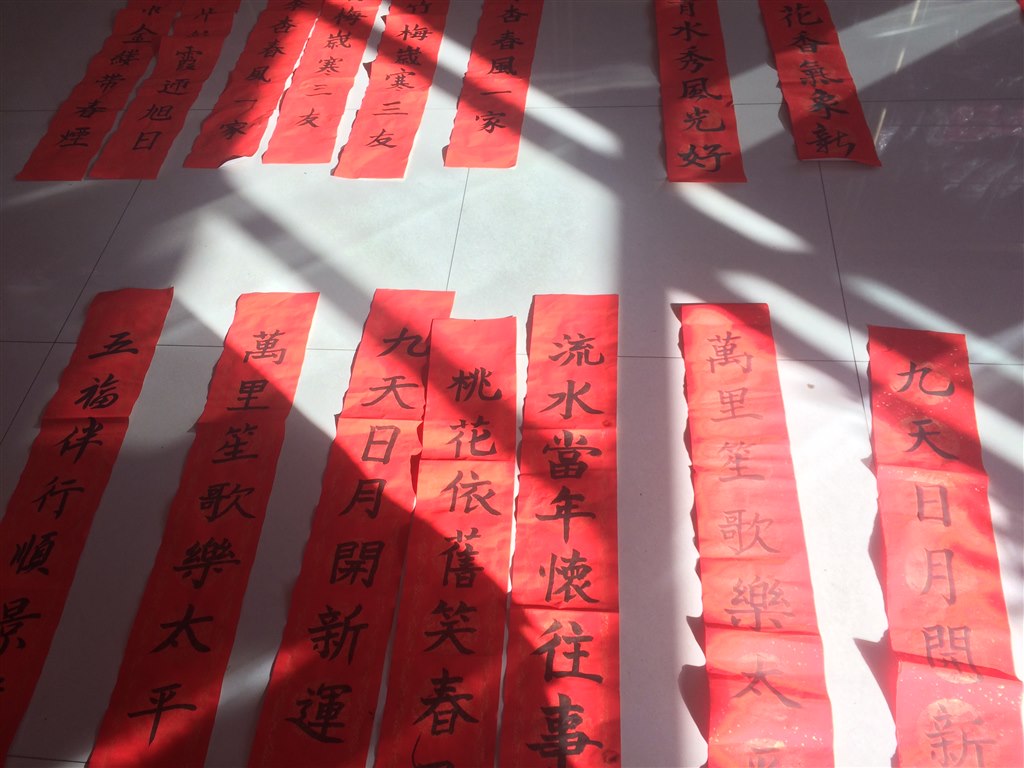 金帶春煙
霞迎旭日
杏春風一家
梅歲寒三友
竹梅歲寒三友
杏春風一家
水秀風光好
花香氣象新
五福伴行順景
萬里笙歌樂太平
九天日月開新運
桃花依舊笑春
流水當年懷往事
萬里笙歌樂太平
九天日月開新